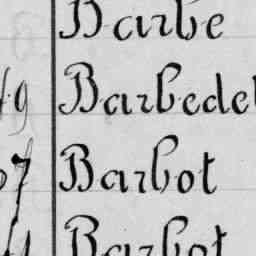 Barbe
49 Barbedet
07 Barbot
Barbot